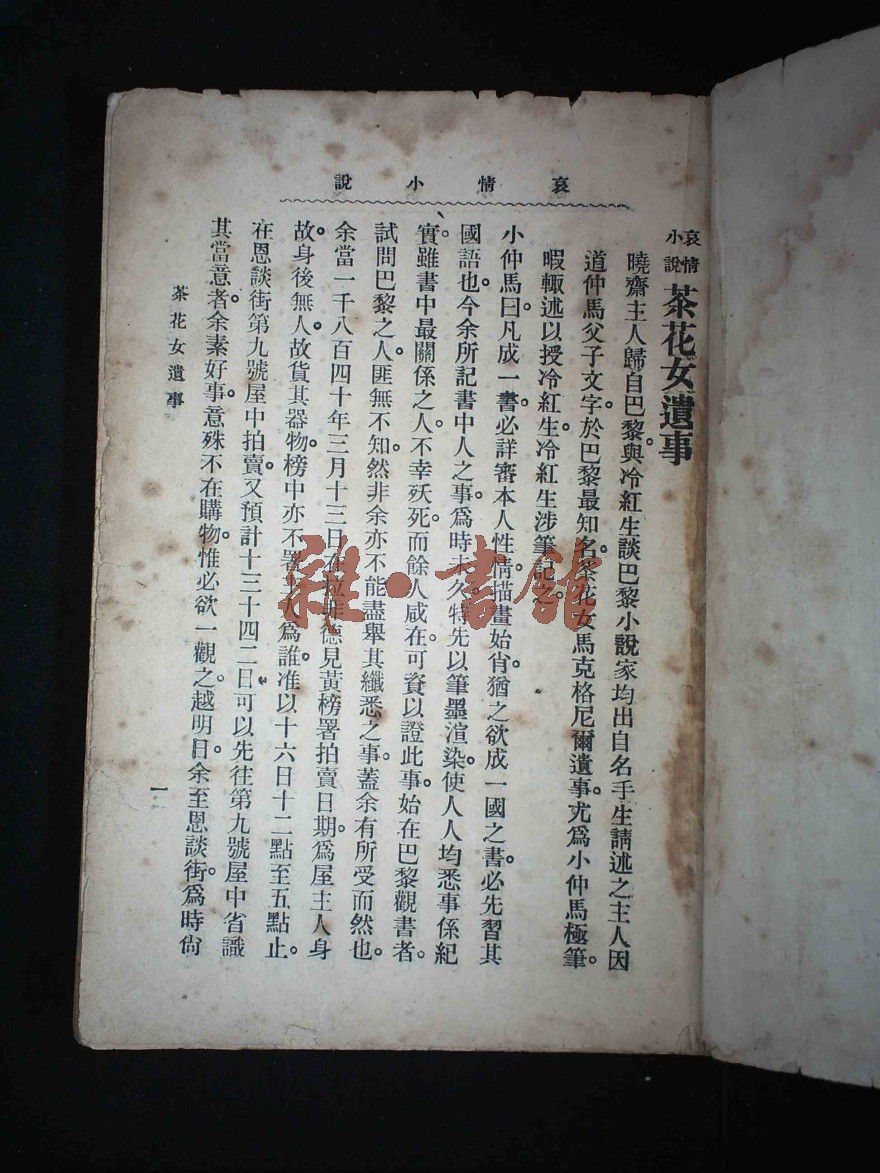 哀情小說
哀情小說 茶花女遺事
曉齋主人歸自巴黎。與冷紅生談巴黎小說家均出自名手生請述之主人因
道仲馬父子文字。於巴黎最知名。茶花女馬克格尼爾遺事。尤爲小仲馬極筆。
暇輒述以授冷紅生冷紅生涉筆記之。
小仲馬曰。凡成一書。必詳審本人性情描畫始肖。猶之欲成一國之書。必先習其
國語也。今余所記書中人之事。爲時未久。特先以筆墨渲染。使人人均悉事係紀
實。雖書中最關係之人。不幸殀死。而餘人咸在。可資以證此事。始在巴黎觀書者。
試問巴黎之人。匪無不知。然非余亦不能盡舉其纖悉之事。蓋余有所受而然也。
余當一千八百四十年三月十三日在拉非德見黃榜署拍賣日期。爲屋主人身
故。身後無人。故貨其器物。榜中亦不署主人爲誰。准以十六日十二點至五點止。
在恩談街第九號屋中拍賣。又預計十三十四二日。可以先往第九號屋中省識
其當意者。余素好事。意殊不在購物。惟必欲一觀之。越明日。余至恩談街。爲時尙
茶花女遺事
一
雜·書館